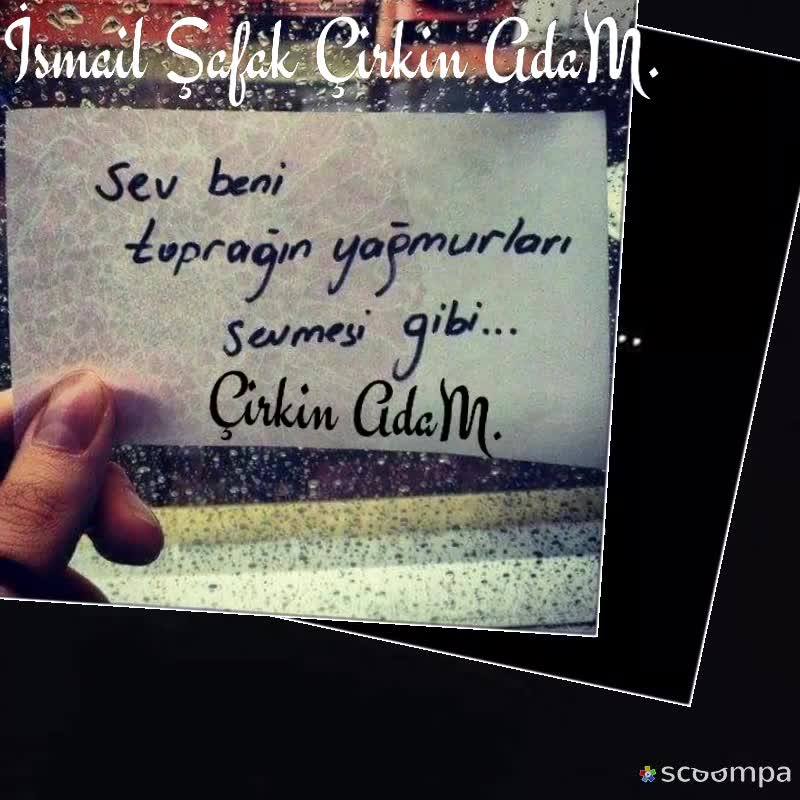 İsmail Şafak Çirkin AdaM.
Sev beni
toprağın yağmurları
sevmesi gibi...
Çirkin AdaM.
..
scoompa